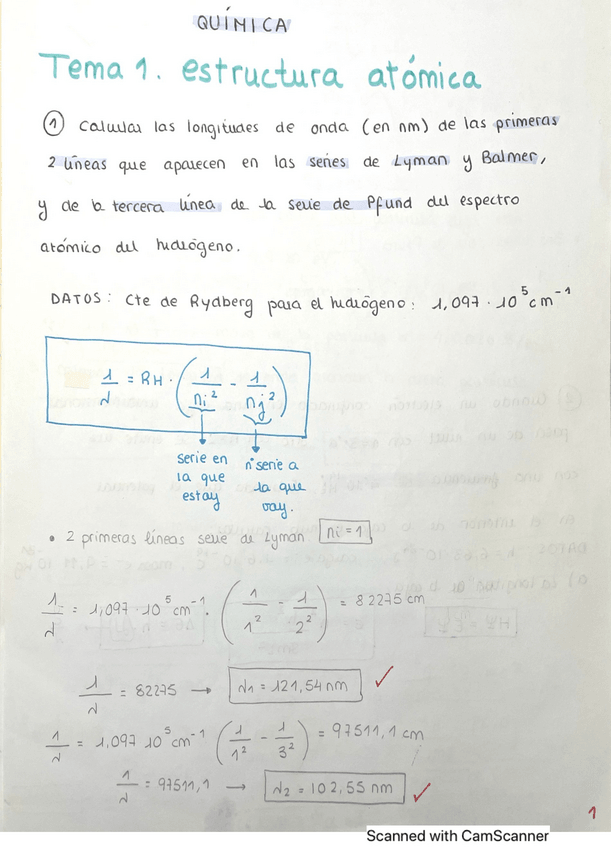 QUÍMICA
Tema 1. estructura atómica
① Calcular las longitudes de onda (en nm) de las primeras
2 líneas que aparecen en las series de Lyman y Balmer,
y de la tercera línea de la serie de Pfund del espectro
atómico del hidrógeno.
DATOS: Cte de Rydberg para el hidrógeno: 1,097 · 10⁵ cm⁻¹
1/λ = RH · (1/ni² - 1/nj²)
serie en la que estoy
nº serie a la que voy.
• 2 primeras líneas serie de Lyman ni = 1
1/λ = 1,097 · 10⁵ cm⁻¹ · (1/1² - 1/2²) = 82275 cm
1/λ = 82275 → λ1 = 121,54 nm ✓
1/λ = 1,097 10⁵ cm⁻¹ (1/1² - 1/3²) = 97511,1 cm
1/λ = 97511,1 → λ2 = 102,55 nm ✓
1
Scanned with CamScanner